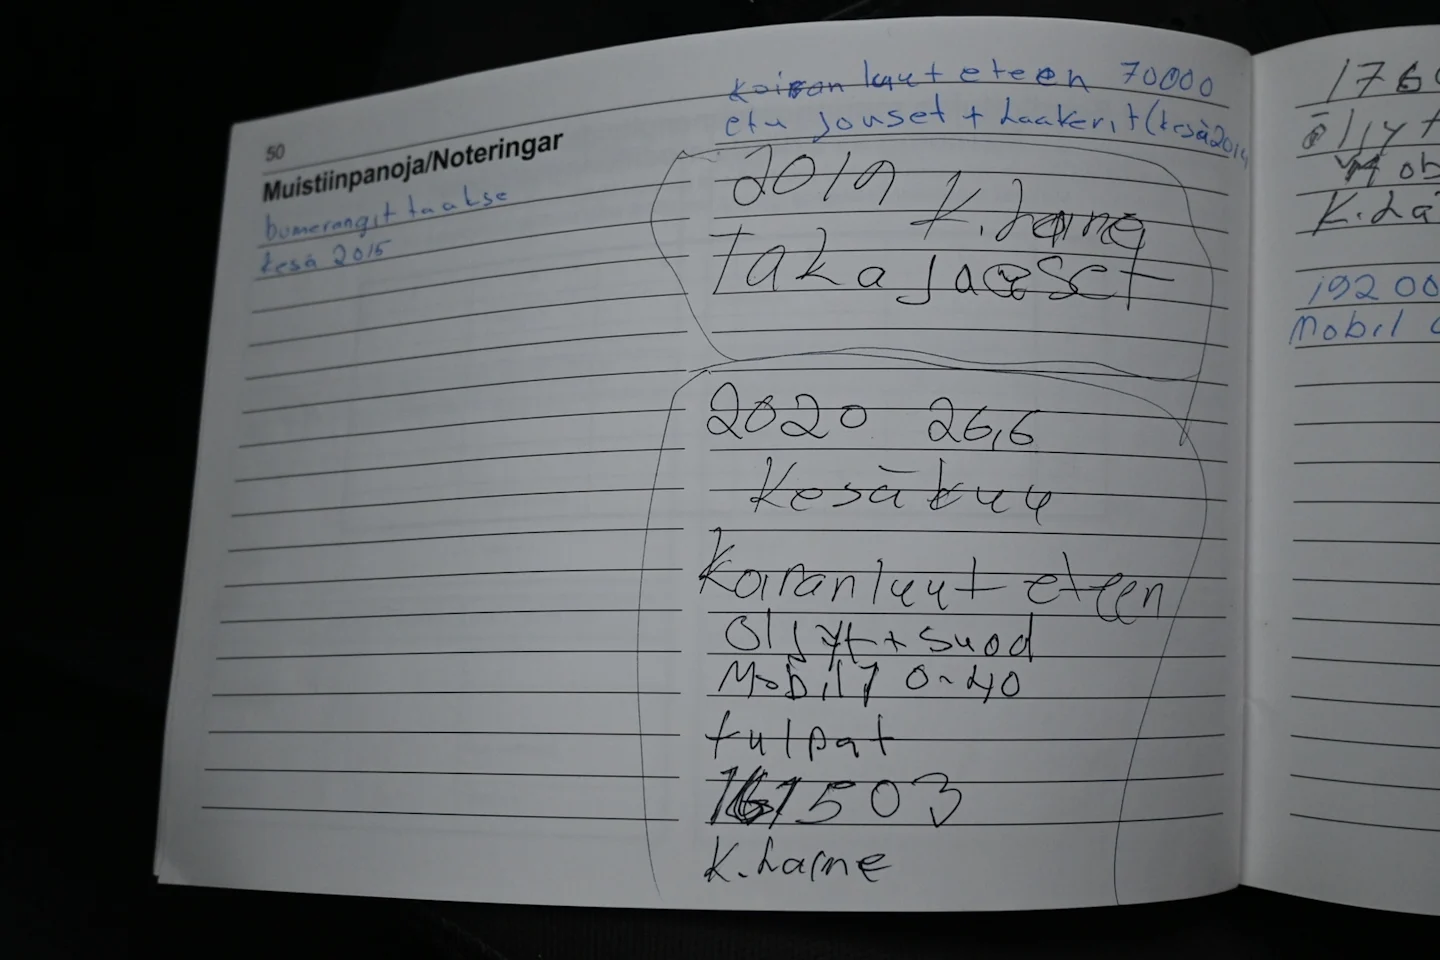 50
Muistiinpanoja/Noteringar
bumerangit taakse
kesä 2015
koiran luut eteen 70000
etu jouset + haakerit (kesä 2014
2019
K. Laine
Taka jouset
2020 26,6
Kesäkuu
Koiranluut eteen
Öljyt + suod
Mobil 1 0-40
tulpat
161503
K. Laine
176
öljyt
Mob
K. La
19200
Mobil